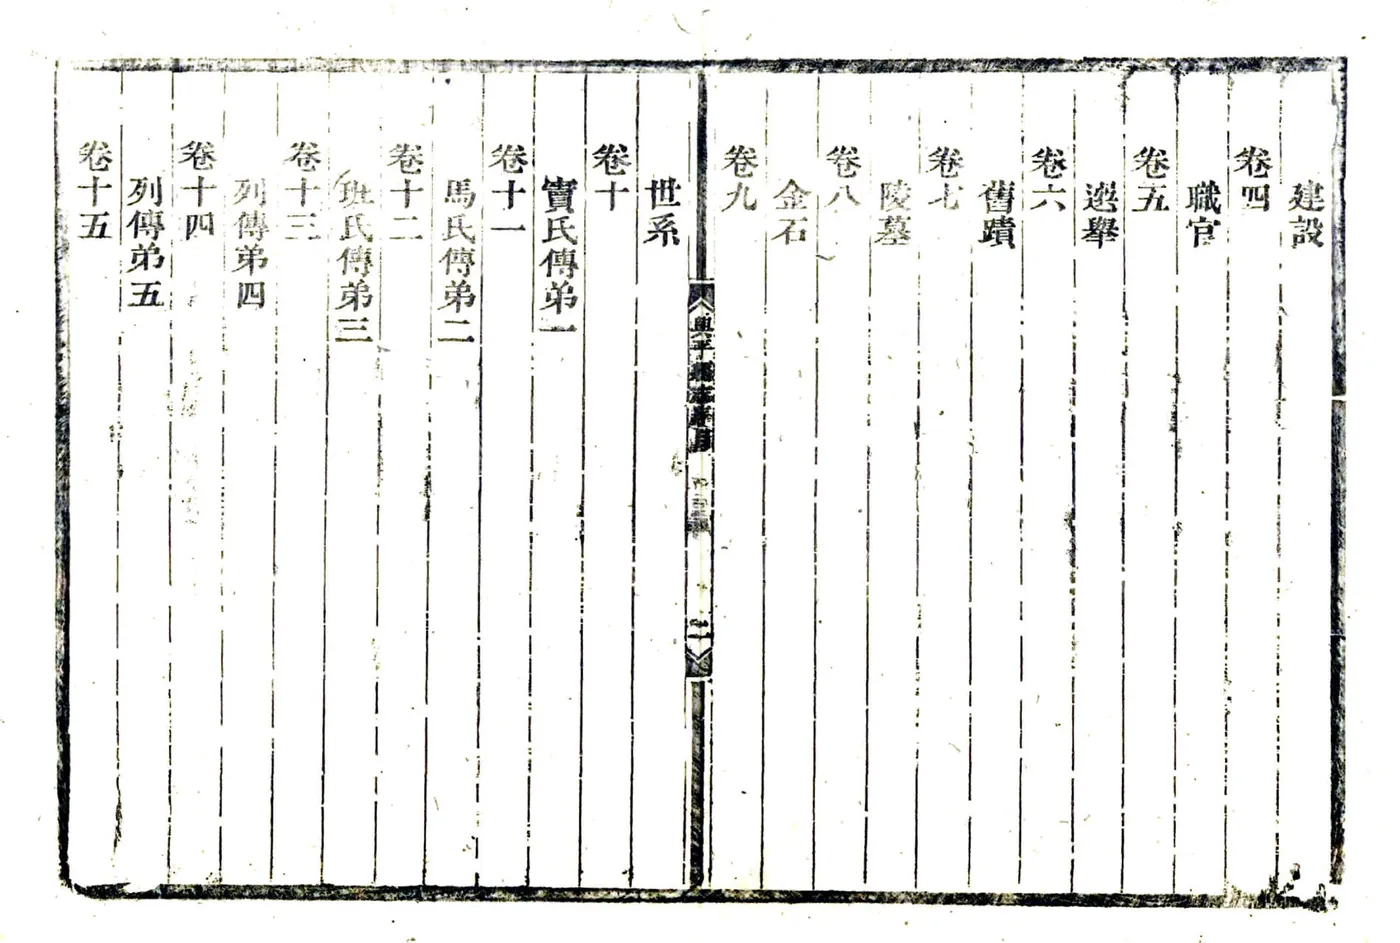 建設
卷四
職官
卷五
選舉
卷六
舊蹟
卷七
陵墓
卷八
金石
卷九
興平縣志
二
世系
卷十
竇氏傳弟一
卷十一
馬氏傳弟二
卷十二
班氏傳弟三
卷十三
列傳弟四
卷十四
列傳弟五
卷十五